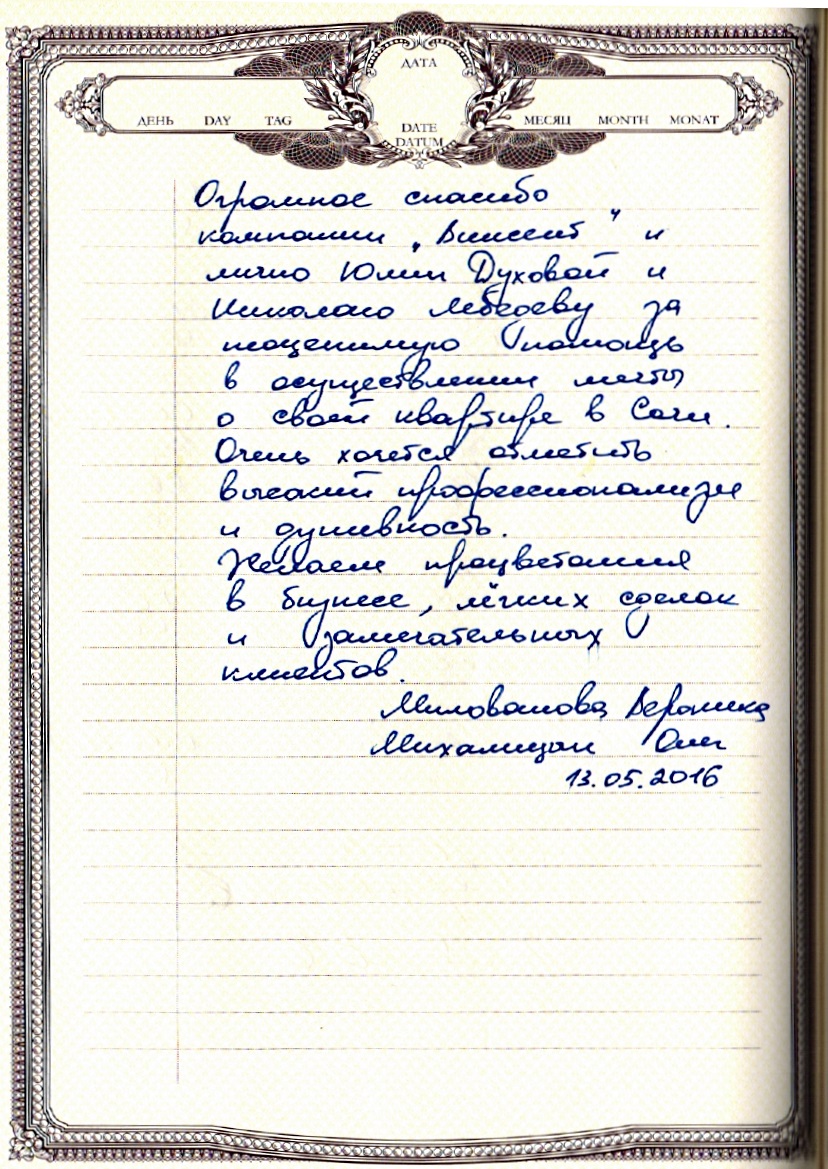 ДАТА
ДЕНЬ DAY TAG
DATE
DATUM
МЕСЯЦ MONTH MONAT
Огромное спасибо
компании „Винсент" и
лично Юлии Духовой и
Николаю Лебедеву за
неоценимую помощь
в осуществлении мечты
о своей квартире в Сочи.
Очень хочется отметить
высокий профессионализм
и душевность.
Желаем процветания
в бизнесе, лёгких сделок
и замечательных
клиентов.
Милованова Вероника
Михалицын Олег
13.05.2016